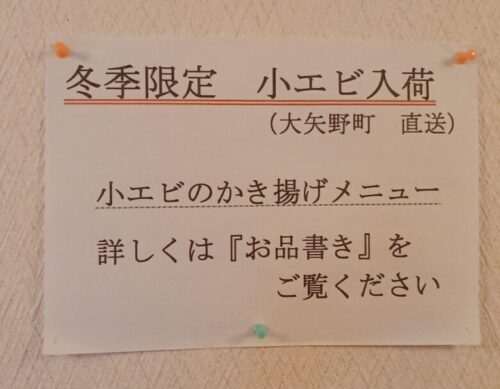 冬季限定　小エビ入荷
（大矢野町　直送）
小エビのかき揚げメニュー
詳しくは『お品書き』を
ご覧ください